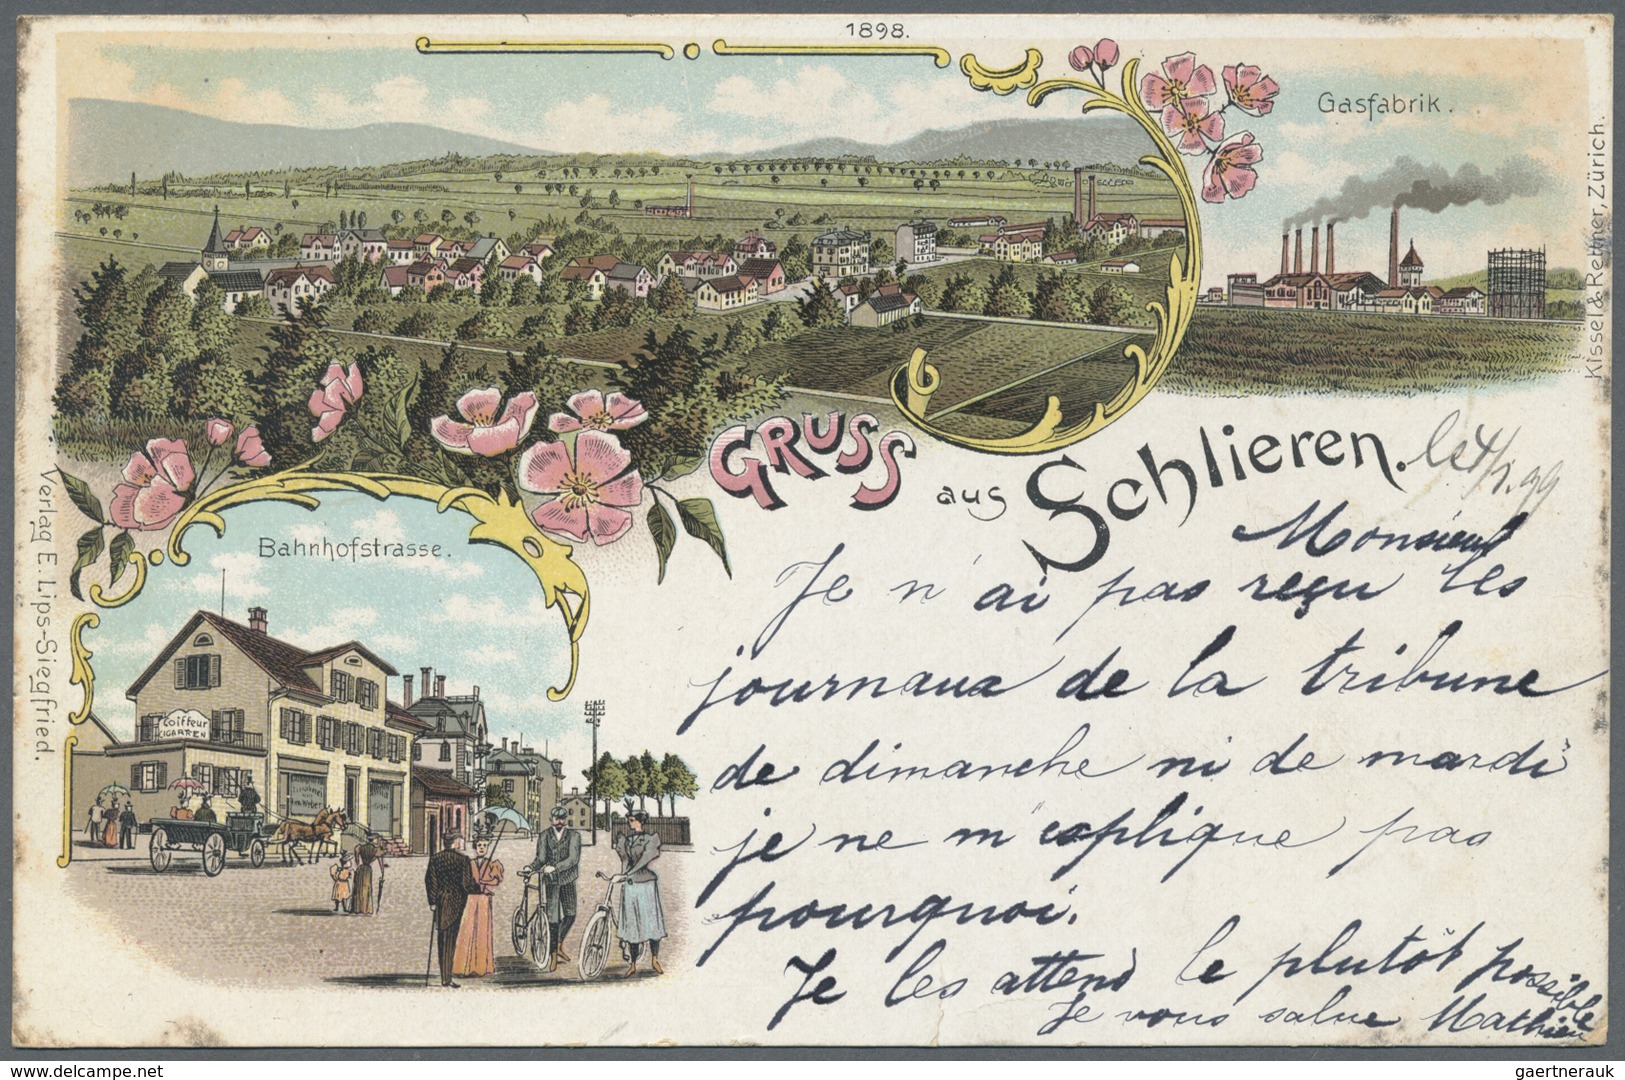 1898.
Gasfabrik.
Kissel & Rethner, Zürich.
GRUSS aus Schlieren.
le 4/1.99
Verlag E. Lips-Siegfried.
Bahnhofstrasse.
Coiffeur
CIGARREN
Weber
Monsieur
Je n'ai pas reçu les
journaux de la tribune
de dimanche ni de mardi
je ne m'explique pas
pourquoi.
Je les attend le plutôt possible
Je vous salue Mathieu
delcampe.net
gaertnerauk